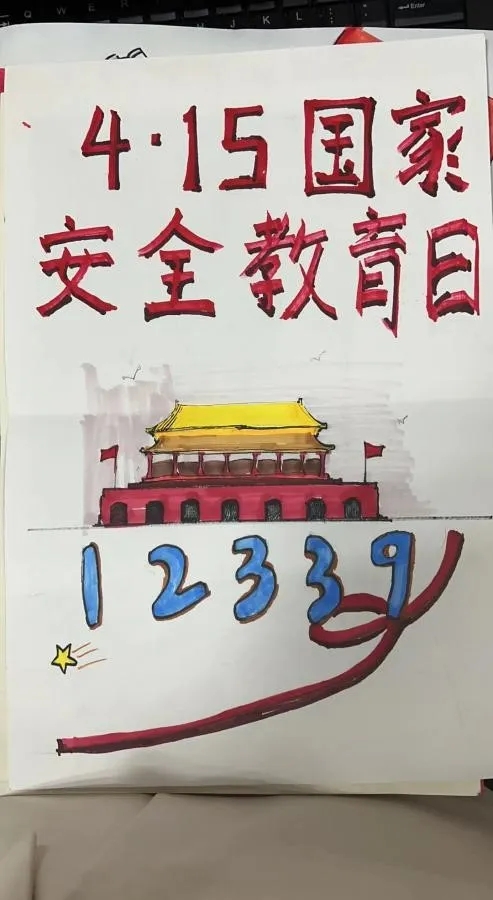 Q W E R
H J K L
Enter
4·15国家
安全教育目
12339